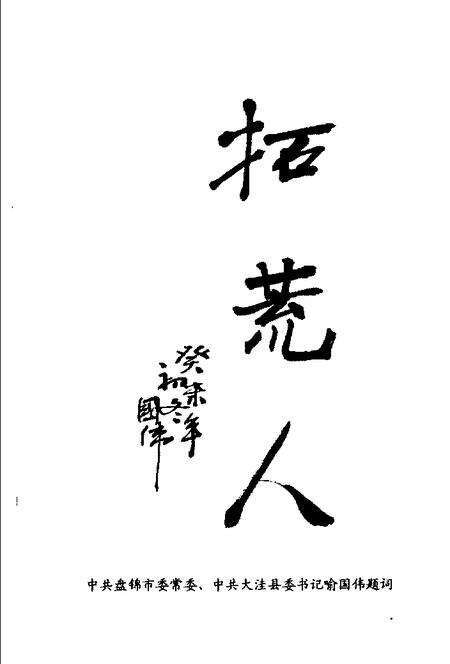 拓荒人
癸未年
初冬
國偉
中共盘锦市委常委、中共大洼县委书记喻国伟题词